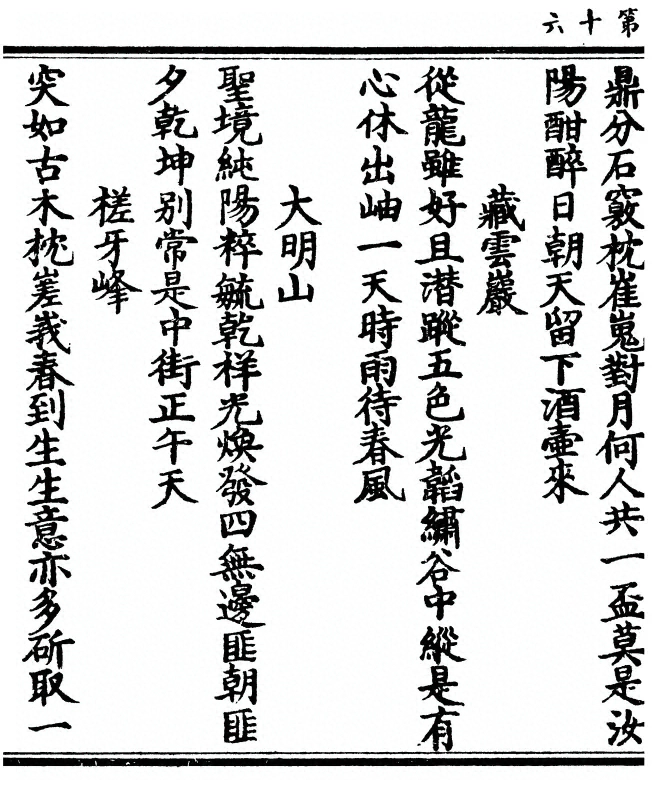 第十六
鼎分石竅枕崔嵬對月何人共一盃莫是汝
陽酣醉日朝天留下酒壷來
藏雲巖
從龍雖好且潛蹤五色光韜繡谷中縱是有
心休出岫一天時雨待春風
大明山
聖境純陽粹毓乾祥光煥發四無邊匪朝匪
夕乾坤别常是中街正午天
槎牙峰
突如古木枕嵳峩春到生生意亦多斫取一